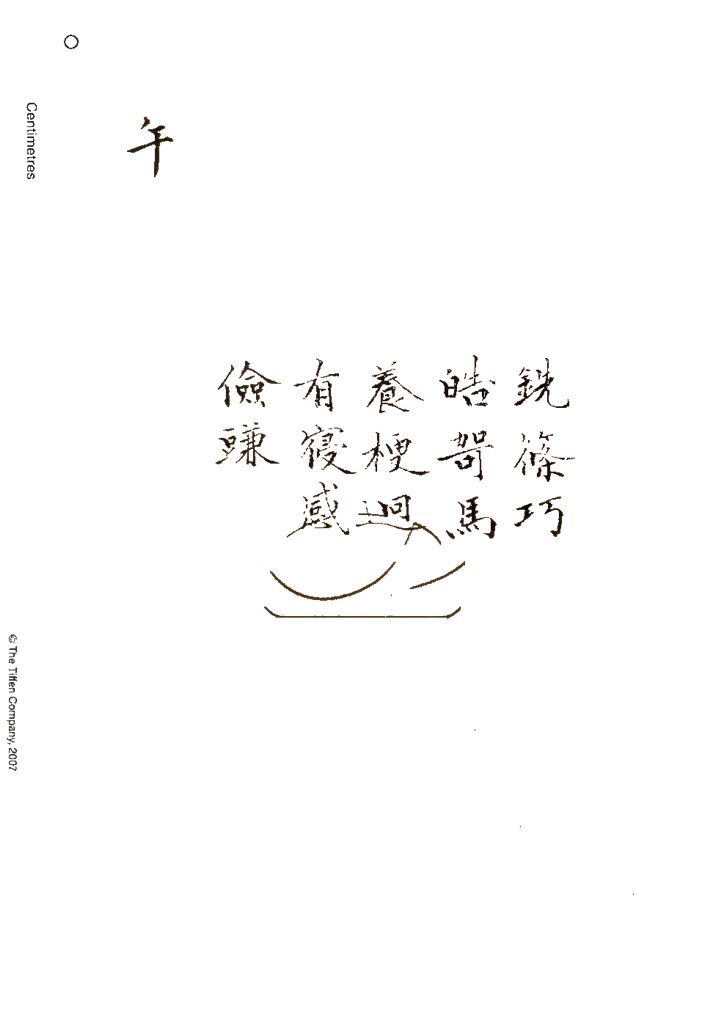 銑篠巧
皓哿馬
養梗迥
有寢感
儉豏
午
Centimetres
© The Tiffen Company, 2007